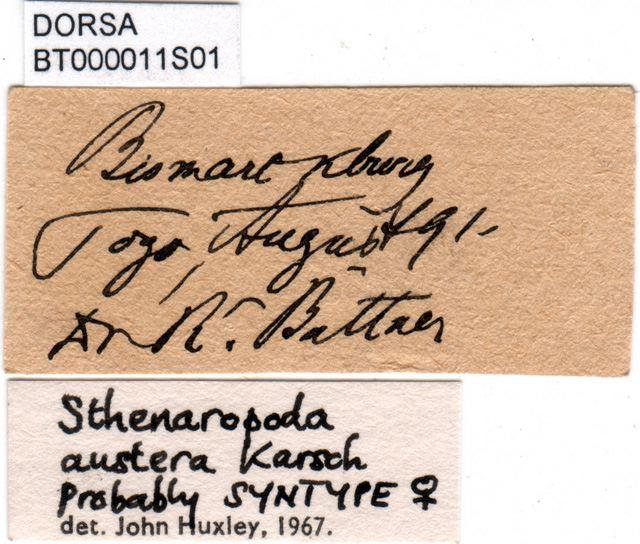 DORSA
BT000011S01
Bismarckburg
Togo, August 91.
Dr. R. Büttner
Sthenaropoda
austera Karsch
Probably SYNTYPE ♀
det. John Huxley, 1967.